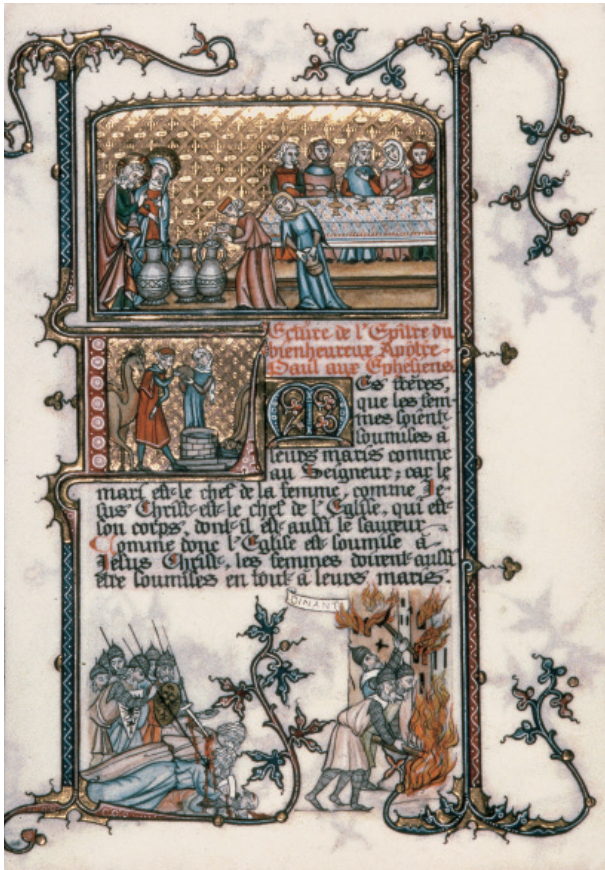 Lecture de l'Epître du
bienheureux Apôtre
Paul aux Ephésiens.
Mes frères,
que les fem-
mes soient
soumises à
leurs maris comme
au Seigneur; car le
mari est le chef de la femme, comme Je-
sus Christ est le chef de l'Eglise, qui est
son corps, dont il est aussi le sauveur.
Comme donc l'Eglise est soumise à
Jesus Christ, les femmes doivent aussi
être soumises en tout à leurs maris.
DINANT